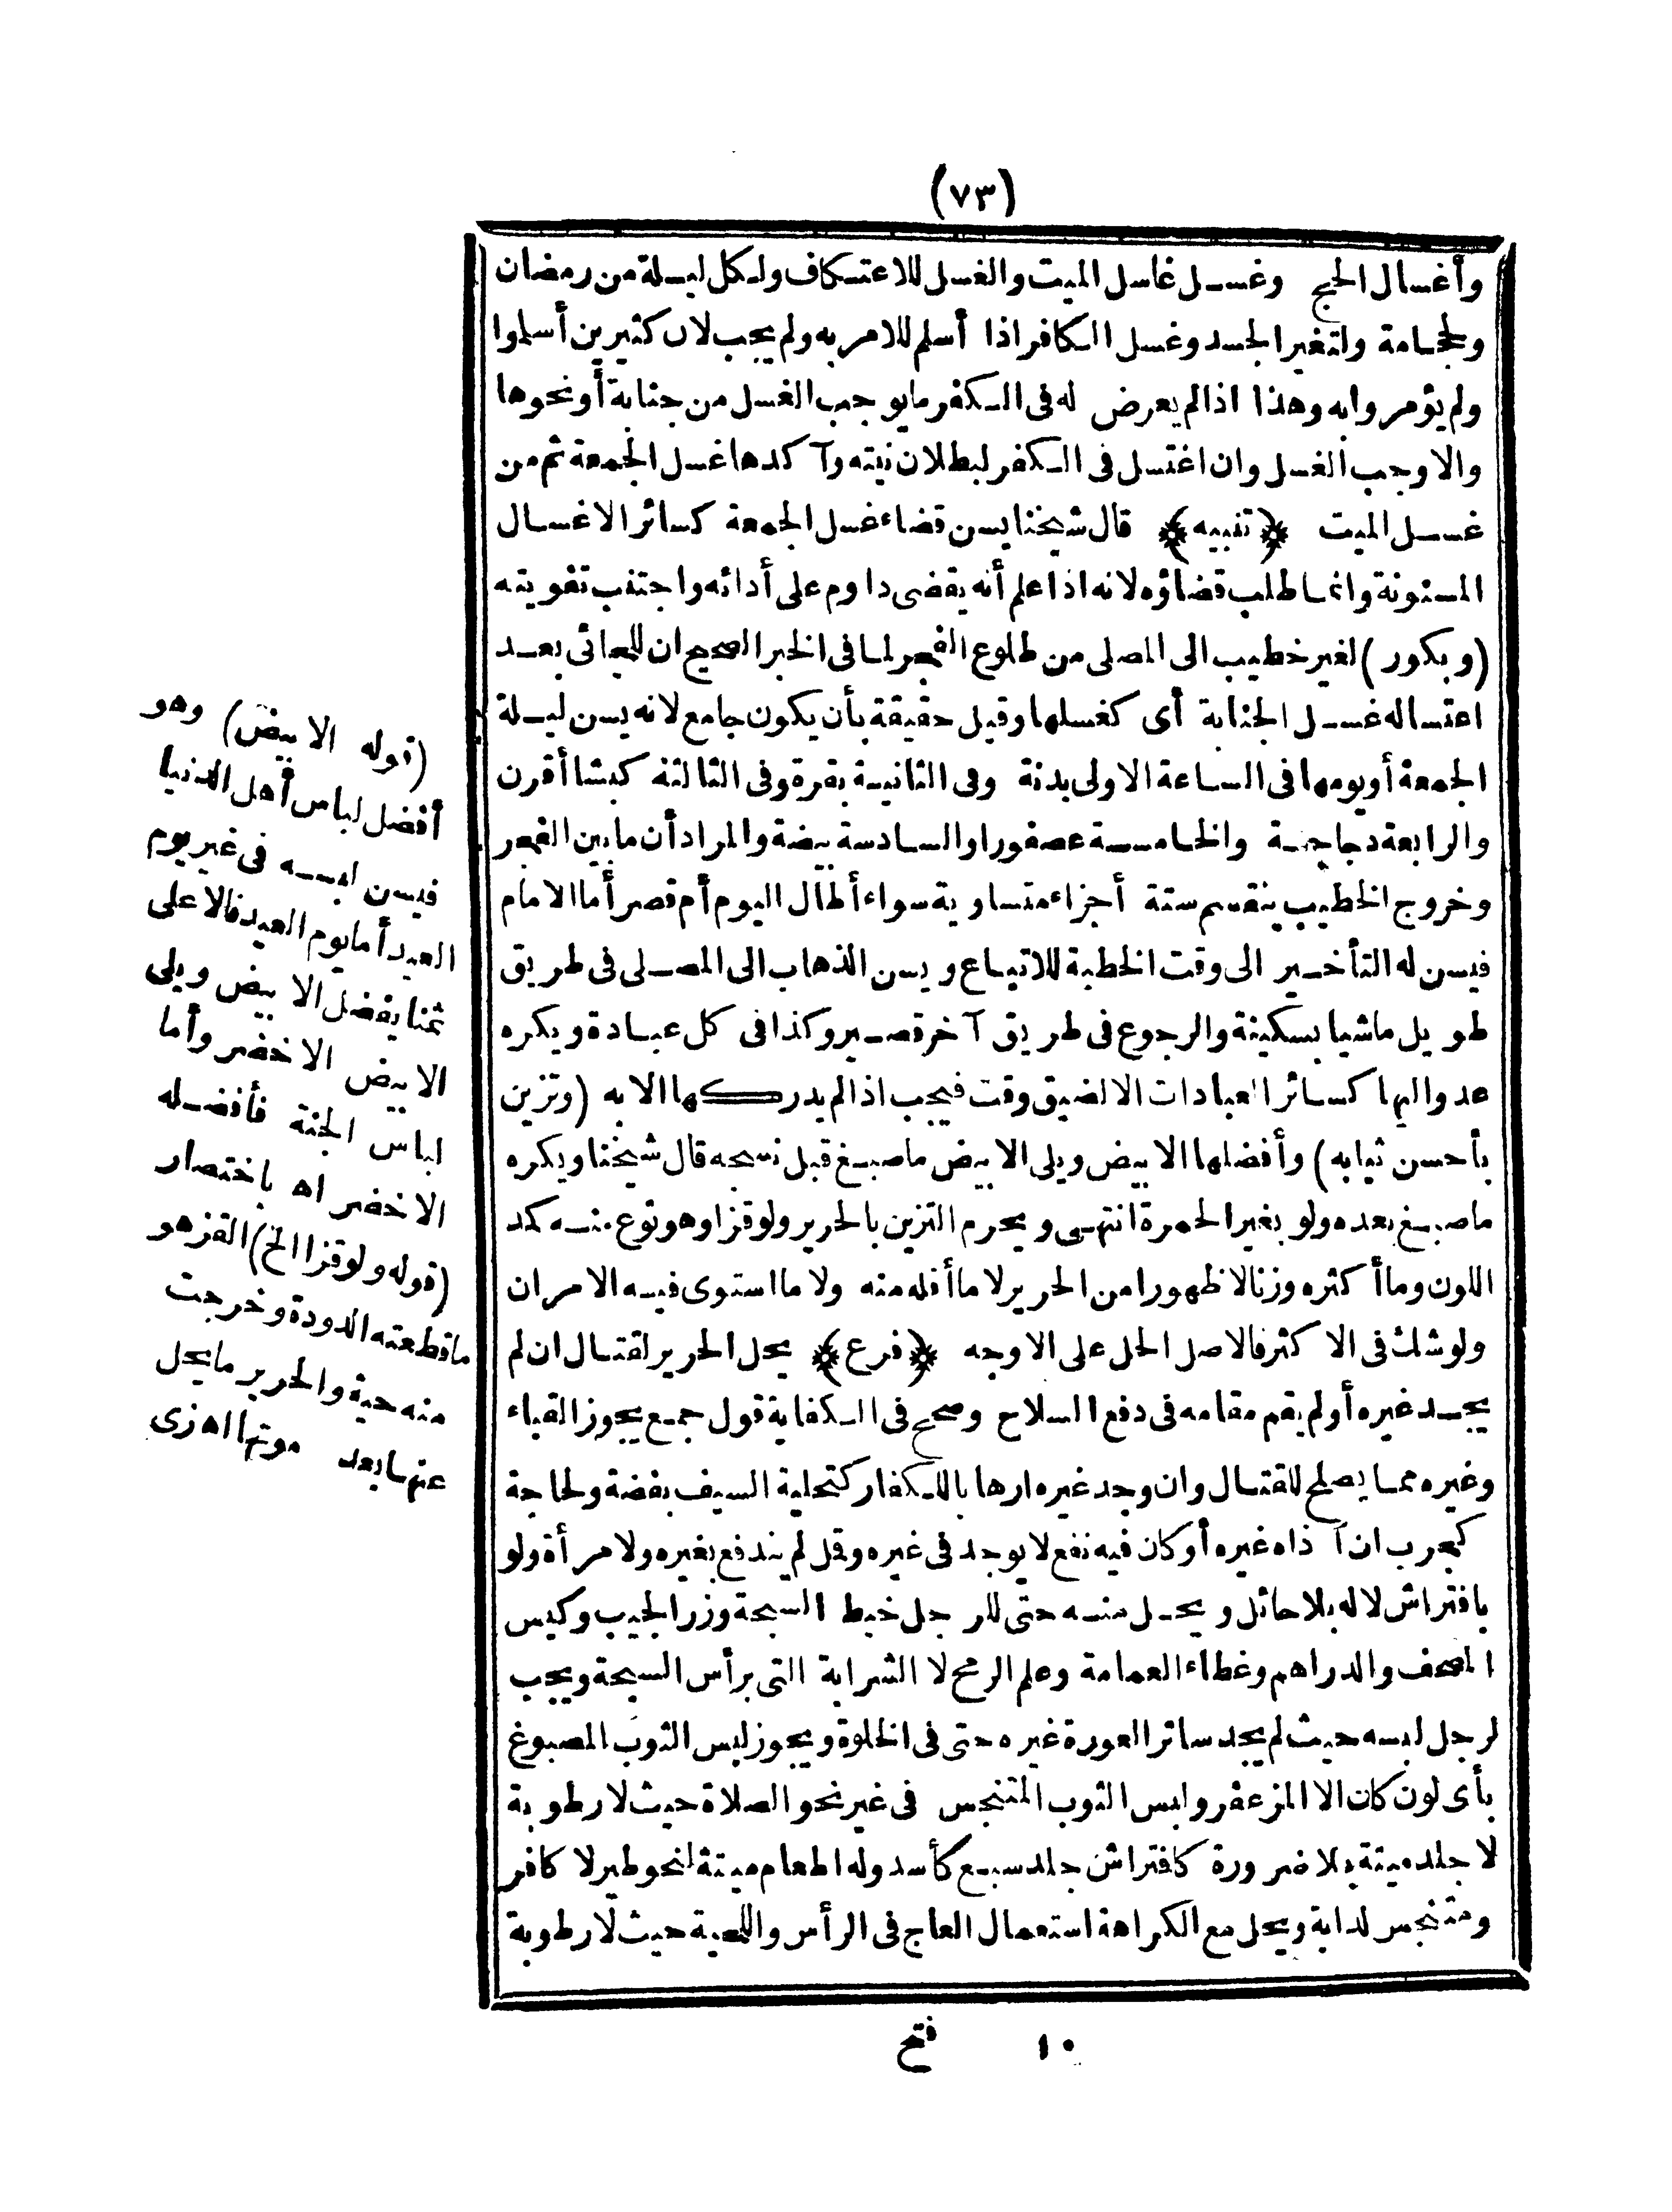 (٧٣)
وأغسال الحج وغسل غاسل الميت والغسل للاعتكاف ولكل ليلة من رمضان
ولحجامة ولتغير الجسد وغسل الكافر اذا أسلم للامر به ولم يجب لان كثيرين أسلموا
ولم يؤمروا به وهذا اذا لم يعرض له فى الكفر ما يوجب الغسل من جنابة أو نحوها
والا وجب الغسل وان اغتسل فى الكفر لبطلان نيته وآكدها غسل الجمعة ثم من
غسل الميت ﴿تنبيه﴾ قال شيخنا يسن قضاء غسل الجمعة كسائر الاغسال
المسنونة وانما طلب قضاؤه لانه اذا علم أنه يقضى داوم على أدائه واجتنب تفويته
(وبكور) لغير خطيب الى المصلى من طلوع الفجر لما فى الخبر الصحيح ان للجائى بعد
اغتساله غسل الجنابة أى كغسلها وقيل حقيقة بأن يكون جامع لانه يسن ليلة
الجمعة أو يومها فى الساعة الاولى بدنة وفى الثانية بقرة وفى الثالثة كبشا أقرن
والرابعة دجاجة والخامسة عصفورا والسادسة بيضة والمراد أن ما بين الفجر
وخروج الخطيب ينقسم ستة أجزاء متساوية سواء أطال اليوم أم قصر أما الامام
فيسن له التأخير الى وقت الخطبة للاتباع ويسن الذهاب الى المصلى فى طريق
طويل ماشيا بسكينة والرجوع فى طريق آخر قصير وكذا فى كل عبادة ويكره
عدو اليها كسائر العبادات الا لضيق وقت فيجب اذا لم يدركها الا به (وتزين
بأحسن ثيابه) وأفضلها الابيض ويلى الابيض ما صبغ قبل نسجه قال شيخنا ويكره
ما صبغ بعده ولو بغير الحمرة انتهى ويحرم التزين بالحرير ولو قزا وهو نوع منه كمد
اللون وما أكثره وزنا لا ظهورا من الحرير لا ما أقله منه ولا ما استوى فيه الامران
ولو شك فى الاكثر فالاصل الحل على الاوجه ﴿فرع﴾ يحل الحرير لقتال ان لم
يجد غيره أو لم يقم مقامه فى دفع السلاح وصحح فى الكفاية قول جمع يجوز القباء
وغيره مما يصلح للقتال وان وجد غيره ارهابا للكفار كتحلية السيف بفضة ولحاجة
كجرب ان آذاه غيره أو كان فيه نفع لا يوجد فى غيره وقمل لم يندفع بغيره ولامرأة ولو
بافتراش لا له بلا حائل ويحل منه حتى للرجل خيط السبحة وزر الجيب وكيس
المصحف والدراهم وغطاء العمامة وعلم الرمح لا الشرابة التى برأس السبحة ويجب
لرجل لبسه حيث لم يجد ساتر العورة غيره حتى فى الخلوة ويجوز لبس الثوب المصبوغ
بأى لون كان الا المزعفر ولبس الثوب المتنجس فى غير نحو الصلاة حيث لا رطوبة
لا جلد ميتة بلا ضرورة كافتراش جلد سبع كأسد وله اطعام ميتة لنحو طير لا كافر
ومتنجس لدابة ويحل مع الكراهة استعمال العاج فى الرأس واللحية حيث لا رطوبة
(قوله الابيض) وهو
أفضل لباس أهل الدنيا
فيسن لبسه فى غير يوم
العيد أما يوم العيد فالاعلى
ثمنا يفضل الابيض ويلى
الابيض الاخضر وأما
لباس الجنة فأفضله
الاخضر اه باختصار
(قوله ولو قزا الخ) القز هو
ما قطعته الدودة وخرجت
منه حية والحرير ما يحل
عنها بعد موتها اه زى
١٠ فتح